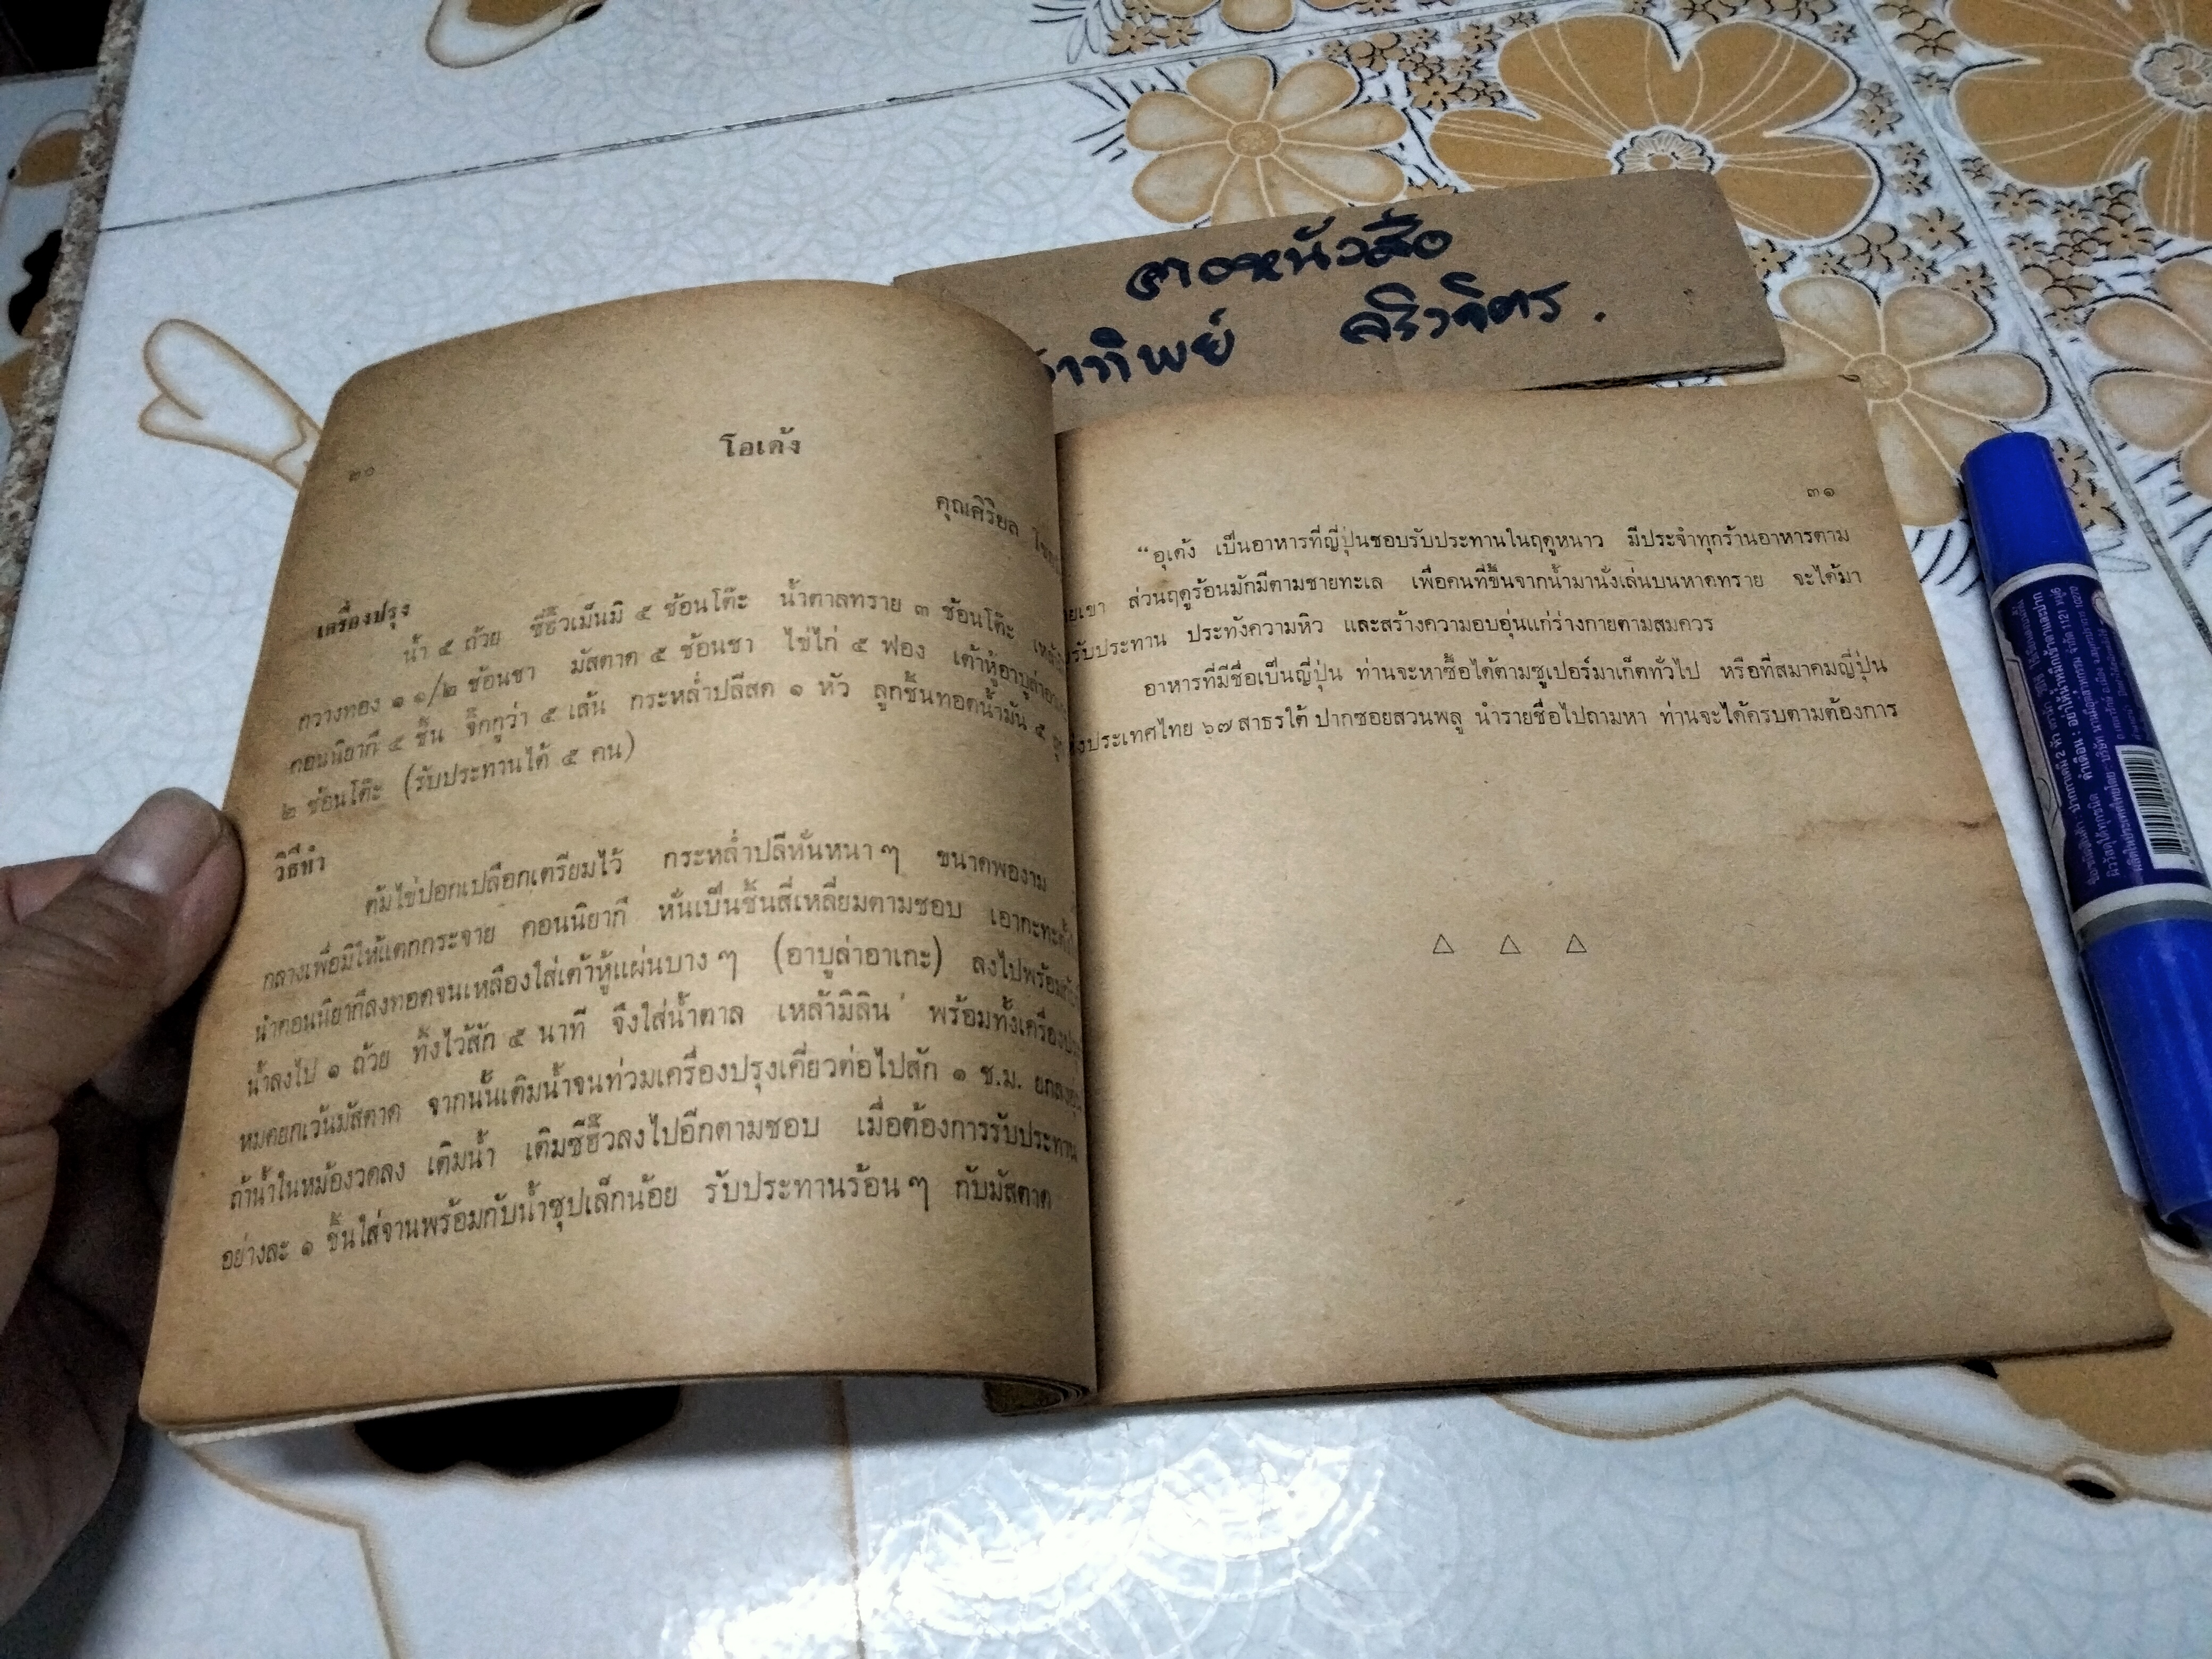 จาทิพย์
๓๐
โอเด้ง
คุณศิริยล
เครื่องปรุง
น้ำ ๕ ถ้วย ซีอิ๊วเม็นมิ ๕ ช้อนโต๊ะ น้ำตาลทราย ๓ ช้อนโต๊ะ
กวางทอง ๑ ๑/๒ ช้อนชา มัสตาด ๕ ช้อนชา ไข่ไก่ ๕ ฟอง เต้าหู้อาบูล่าอาเกะ
คอนนิยากี ๕ ชิ้น จิ๊กกูว่า ๕ เส้น กระหล่ำปลีสด ๑ หัว ลูกชิ้นทอดน้ำมัน ๕
๒ ช้อนโต๊ะ (รับประทานได้ ๕ คน)
วิธีทำ
ต้มไข่ปอกเปลือกเตรียมไว้ กระหล่ำปลีหั่นหนา ๆ ขนาดพองาม
กลางเพื่อมิให้แตกกระจาย คอนนิยากี หั่นเป็นชิ้นสี่เหลี่ยมตามชอบ เอากะทะตั้ง
นำคอนนิยากีลงทอดจนเหลืองใส่เต้าหู้แผ่นบาง ๆ (อาบูล่าอาเกะ) ลงไปพร้อมกับ
น้ำลงไป ๑ ถ้วย ทิ้งไว้สัก ๕ นาที จึงใส่น้ำตาล เหล้ามิลิน พร้อมทั้งเครื่องปรุง
หมดยกเว้นมัสตาด จากนั้นเติมน้ำจนท่วมเครื่องปรุงเคี่ยวต่อไปสัก ๑ ช.ม. ยกลง
ถ้าน้ำในหม้องวดลง เติมน้ำ เติมซีอิ๊วลงไปอีกตามชอบ เมื่อต้องการรับประทาน
อย่างละ ๑ ชิ้นใส่จานพร้อมกับน้ำซุปเล็กน้อย รับประทานร้อน ๆ กับมัสตาด
๓๑
“อุเด้ง เป็นอาหารที่ญี่ปุ่นชอบรับประทานในฤดูหนาว มีประจำทุกร้านอาหารตาม
ส่วนฤดูร้อนมักมีตามชายทะเล เพื่อคนที่ขึ้นจากน้ำมานั่งเล่นบนหาดทราย จะได้มา
รับประทาน ประทังความหิว และสร้างความอบอุ่นแก่ร่างกายตามสมควร
อาหารที่มีชื่อเป็นญี่ปุ่น ท่านจะหาซื้อได้ตามซูเปอร์มาเก็ตทั่วไป หรือที่สมาคมญี่ปุ่น
ประเทศไทย ๖๗ สาธรใต้ ปากซอยสวนพลู นำรายชื่อไปถามหา ท่านจะได้ครบตามต้องการ